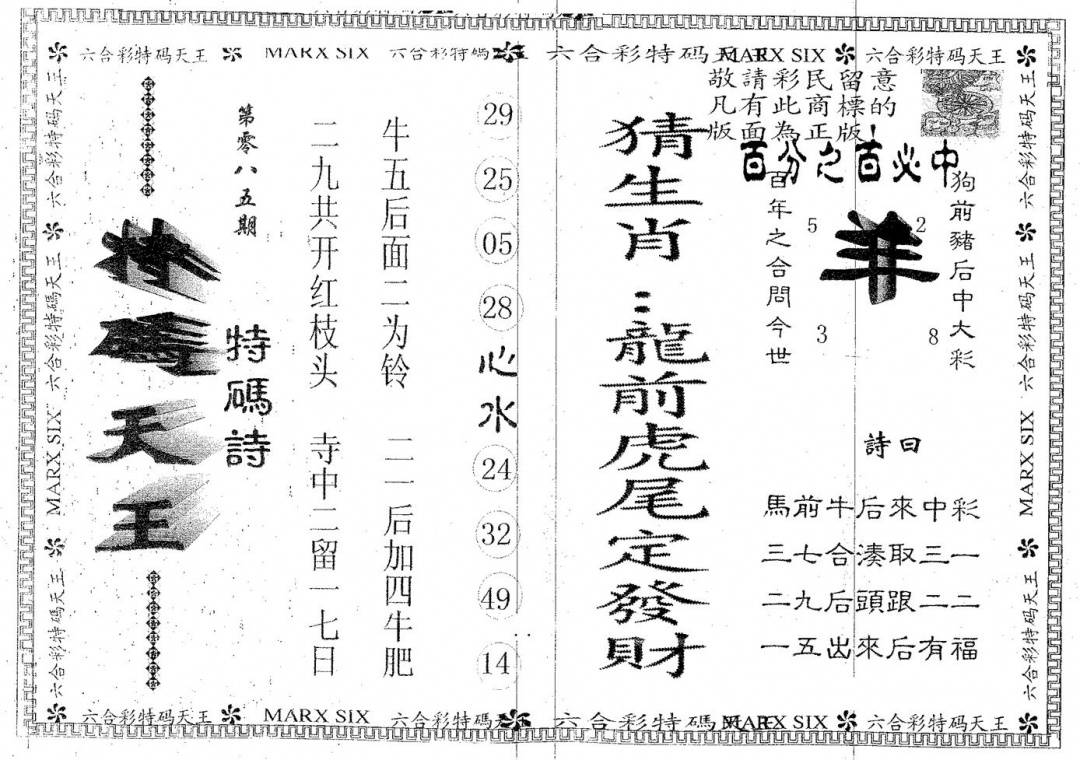 六合彩特码天王 MARX SIX 六合彩特碼天王 六合彩特码天王 MARX SIX 六合彩特码天王
敬請彩民留意
凡有此商標的
版面為正版!
百分之百必中
狗前豬后中大彩
羊
5
2
3
8
百年之合問今世
詩曰
馬前牛后來中彩
三七合湊取三一
二九后頭跟二二
一五出來后有福
猜生肖:龍前虎尾定發財
29
25
05
28
心水
24
32
49
14
牛五后面二为铃 二一后加四牛肥
二九共开红枝头 寺中二留一七日
特碼詩
第零八五期
特碼天王
六合彩特码天王 六合彩特碼天王 MARX SIX 六合彩特码天王
六合彩特码天王 六合彩特码天王 MARX SIX 六合彩特码天王
六合彩特码天王 MARX SIX 六合彩特碼天王 六合彩特碼 MARX SIX 六合彩特码天王